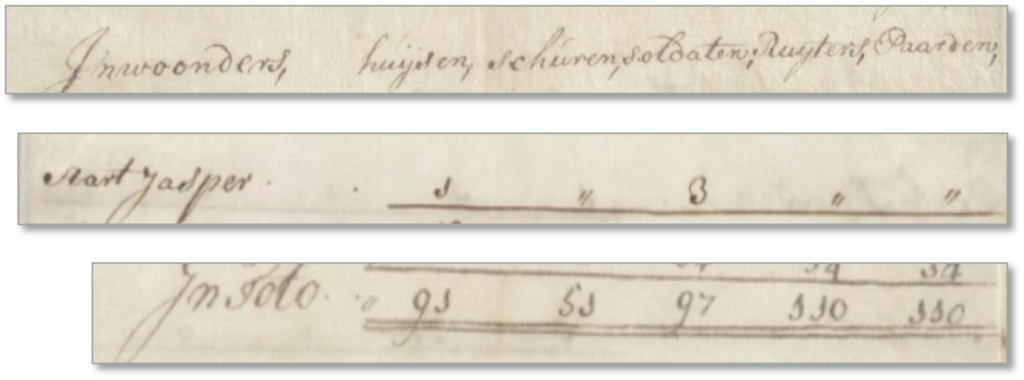 Jnwoonders, huijsen, schúren, soldaten, Ruyters, Paarden,
Aart Jasper . . 1 " 3 " "
Jn Toto . . " 91 51 97 110 110